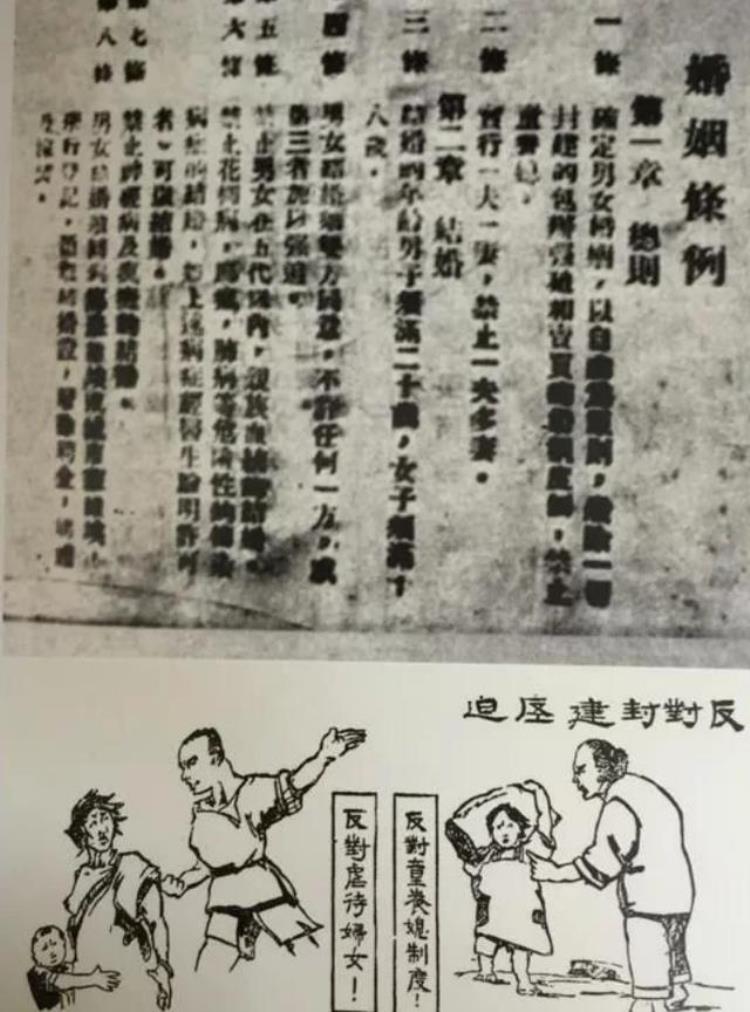 婚姻條例
第一章 總則
一條 確定男女婚姻,以自由為原則,廢除一切
封建的包辦强迫和買賣的婚姻制度,禁止
童養媳。
二條 實行一夫一妻,禁止一夫多妻。
第二章 結婚
三條 結婚的年齡男子須滿二十歲,女子須滿十
八歲。
四條 男女結婚須雙方同意,不許任何一方,或
第三者加以强迫。
五條 禁止男女在五代以內,親族血統的結婚。
第六條 禁止花柳病,麻瘋,肺病等危險性的傳染
病症的結婚,如上述病症經醫生驗明許可
者,可以結婚。
第七條 禁止神經病及瘋癱的結婚。
第八條 男女結婚須同到
舉行登記,領取結婚證,廢除聘金,聘禮
及嫁妝。
反對封建压迫
反對童養媳制度!
反對虐待婦女!